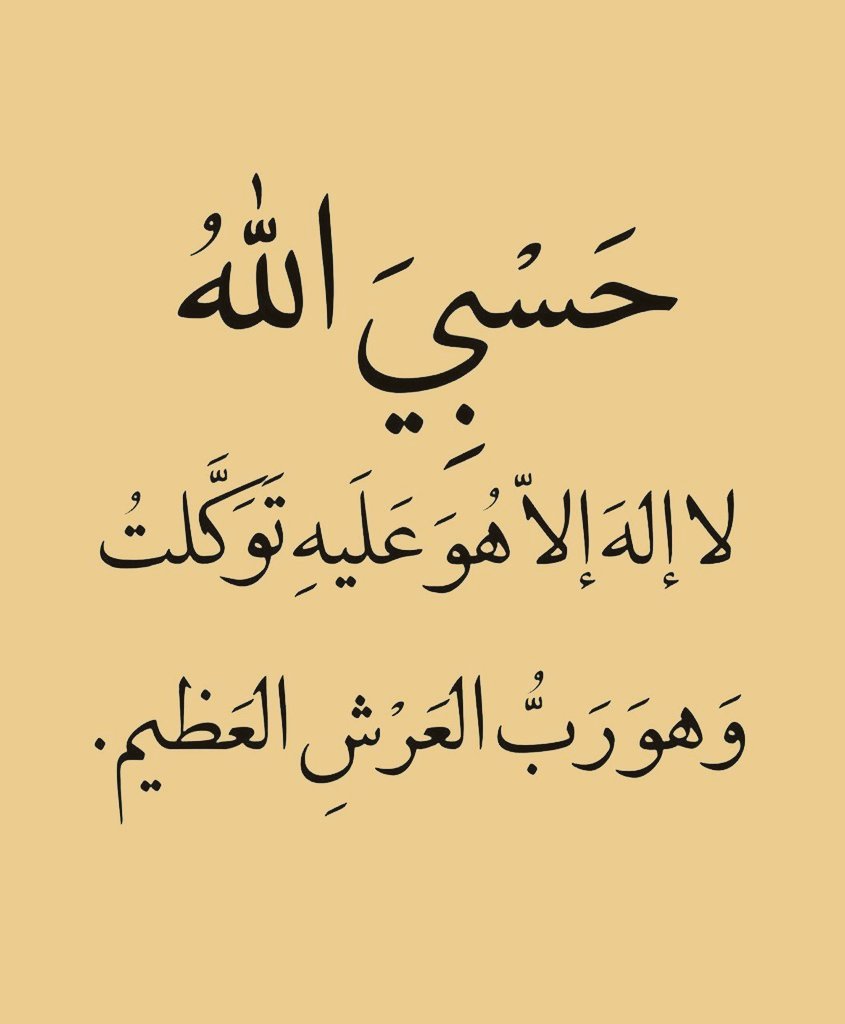 حَسْبِيَ اللّٰهُ
لا إلهَ إلاّ هُوَ عَلَيهِ تَوَكَّلتُ
وَهوَ رَبُّ العَرْشِ العَظيم.